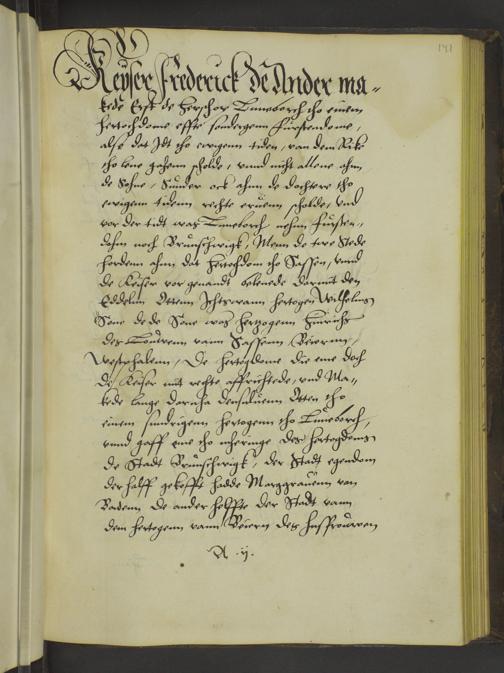 141
Keyser Frederick De Ander ma-
kede Erst de Herschop Luneborch tho einem
hertochdome effte sondergenn Furstendome,
also dat Idt tho ewigenn tiden, van dem Rike
tho lene gahenn scholde, vnnd nicht allene ahnn
de Sohne, Sunder ock ahnn de dochtere tho
ewigenn tidenn rechte eruenn scholde, Vnd
vor der tidt was Luneborch nehin Fursten-
dohm noch Brunschwigk, Menn de twe Stede
hordenn ahnn dat Hertochdom tho Sassen, vnnd
de Keiser vorgenandt belenede darmit den
Eddelen Ottenn Ichteswann hertogen Wilhelms
Sone de de Sone was Hertzogenn Hinrichs
des Louwenn vann Sassenn Beierenn,
Westphalenn, De hertogdome die eme doch
De Keiser mit rechte affrichtede, vnd Ma-
kede lange darnha densuluenn Otten tho
einem sundrigenn hertogenn tho Luneborch,
vnnd gaff eme tho inheringe des hertogdoms
de Stadt Brunschwigk, der Stadt egendom
der halff gekofft hadde Marggrauenn van
Badenn De ander helffte der Stadt vann
dem hertogenn vann Beiern des husfrouwen
A ij